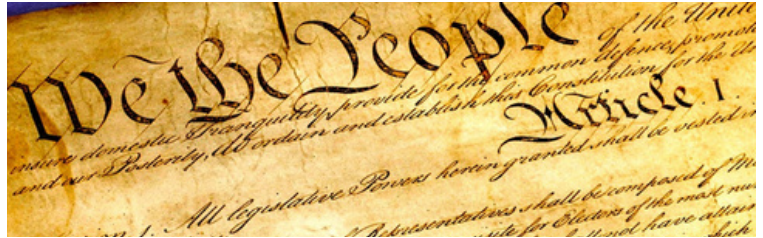 We the People
of the Unite
insure domestic Tranquility, provide for the common defence, promote
and our Posterity, do ordain and establish this Constitution for the Un
Article. I.
1. All legislative Powers herein granted shall be vested in
Representatives shall be composed of M
for Electors of the most nu
not have attain
which